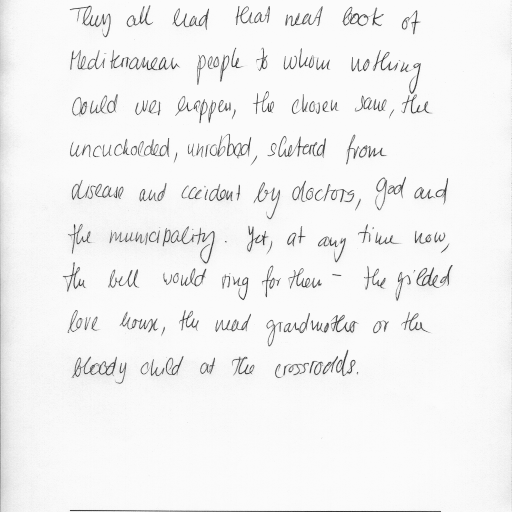 They all had that neat look of
Mediterranean people to whom nothing
could ever happen, the chosen sane, the
uncuckolded, unrobbed, sheltered from
disease and accident by doctors, God and
the municipality. Yet, at any time now,
the bell would ring for them – the gilded
love house, the mad grandmother or the
bloody child at the crossroads.